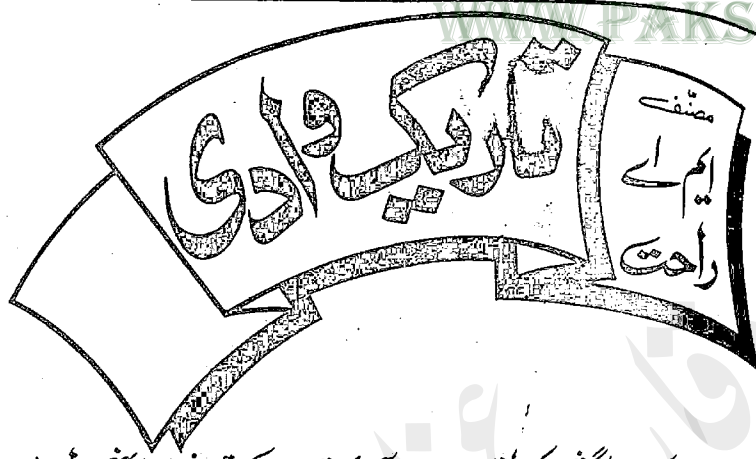 WWW.PAKS
مصنّف
ایم اے
راحت
تاریک وادی